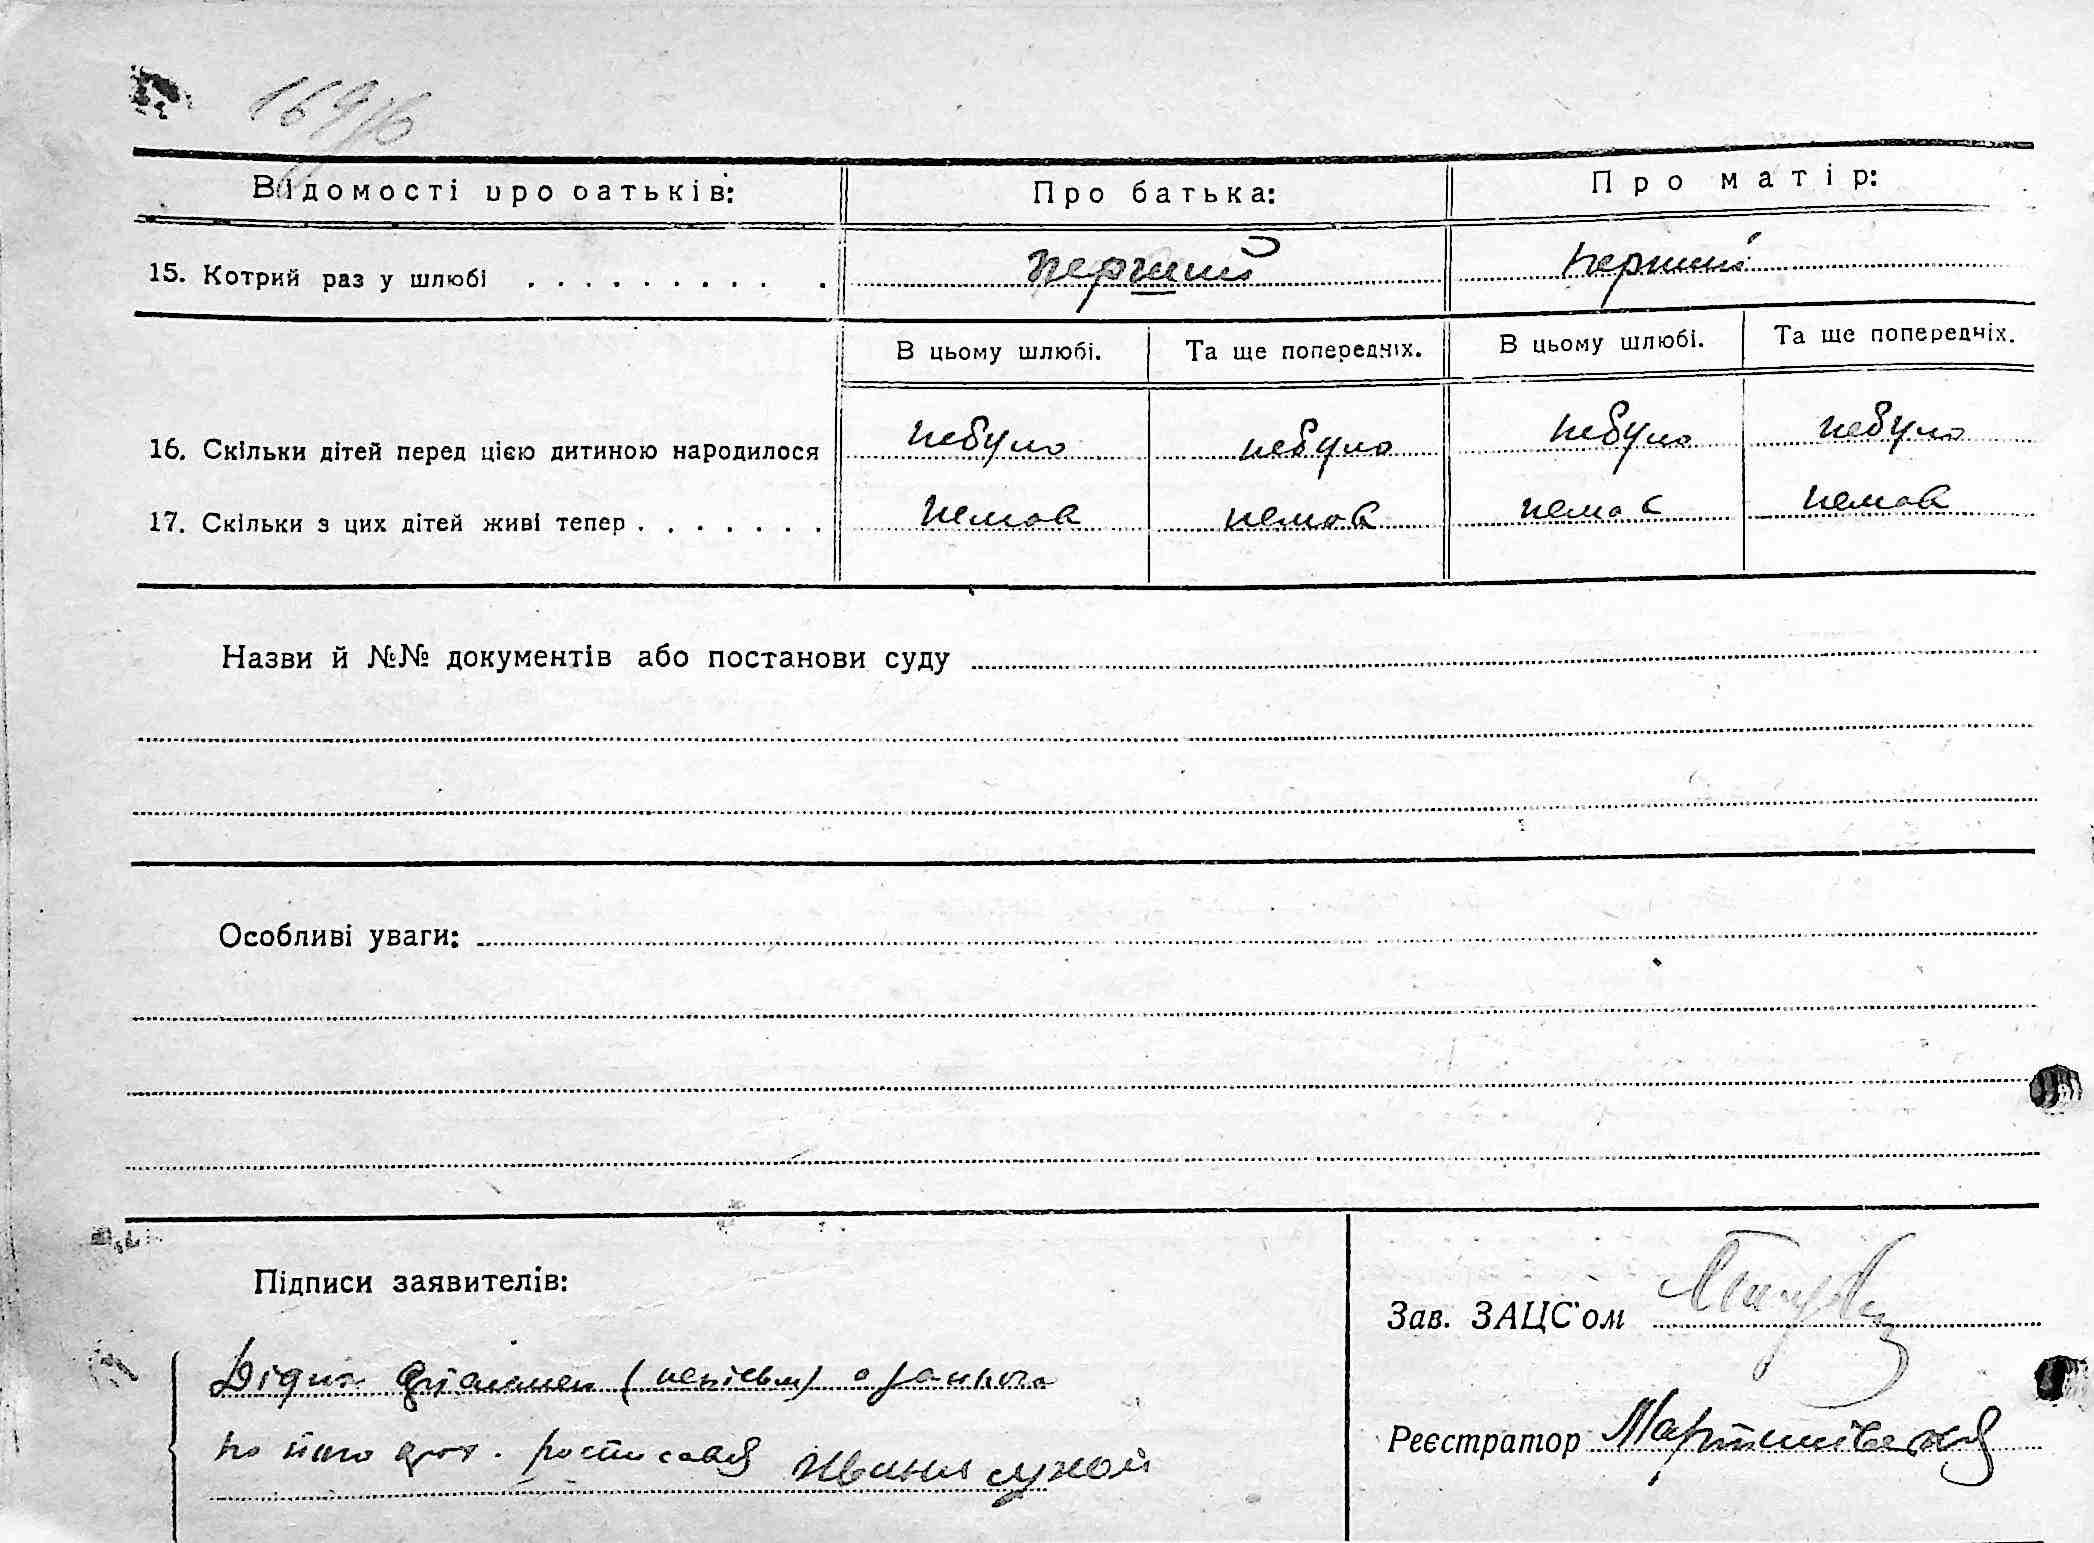 Відомості про батьків: Про батька: Про матір:
15. Котрий раз у шлюбі перший перший
В цьому шлюбі. Та ще попередніх. В цьому шлюбі. Та ще попередніх.
16. Скільки дітей перед цією дитиною народилося небуло небуло небуло небуло
17. Скільки з цих дітей живі тепер немає немає немає немає
Назви й №№ документів або постанови суду
Особливі уваги:
Підписи заявителів:
Зав. ЗАЦС'ом
Реєстратор
по його